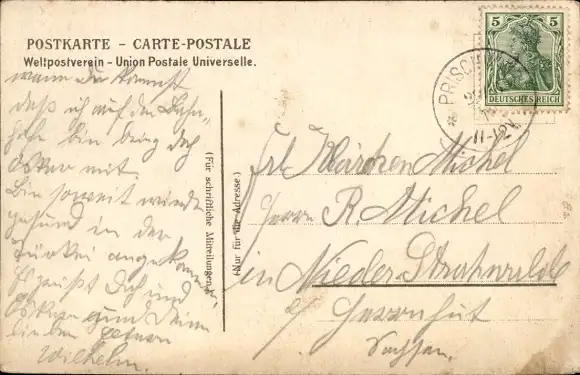 POSTKARTE – CARTE-POSTALE
Weltpostverein – Union Postale Universelle.
wann Du kommst
daß ich auf den Bahn-
hofe bin bring doch
Oskar mit.
Bin soweit wieder
gesund in der
Türkei angekommen
Es grüßt Dich und
Oskar und Deine
lieben Eltern
Wilhelm.
(Für schriftliche Mitteilungen.)
(Nur für die Adresse.)
5 5
DEUTSCHES REICH
* PRISCH
11-12V.
Frl. Klärchen Michel
Herrn R. Michel
in Nieder-Strahwalde
b/ Herrnhut
Sachsen.